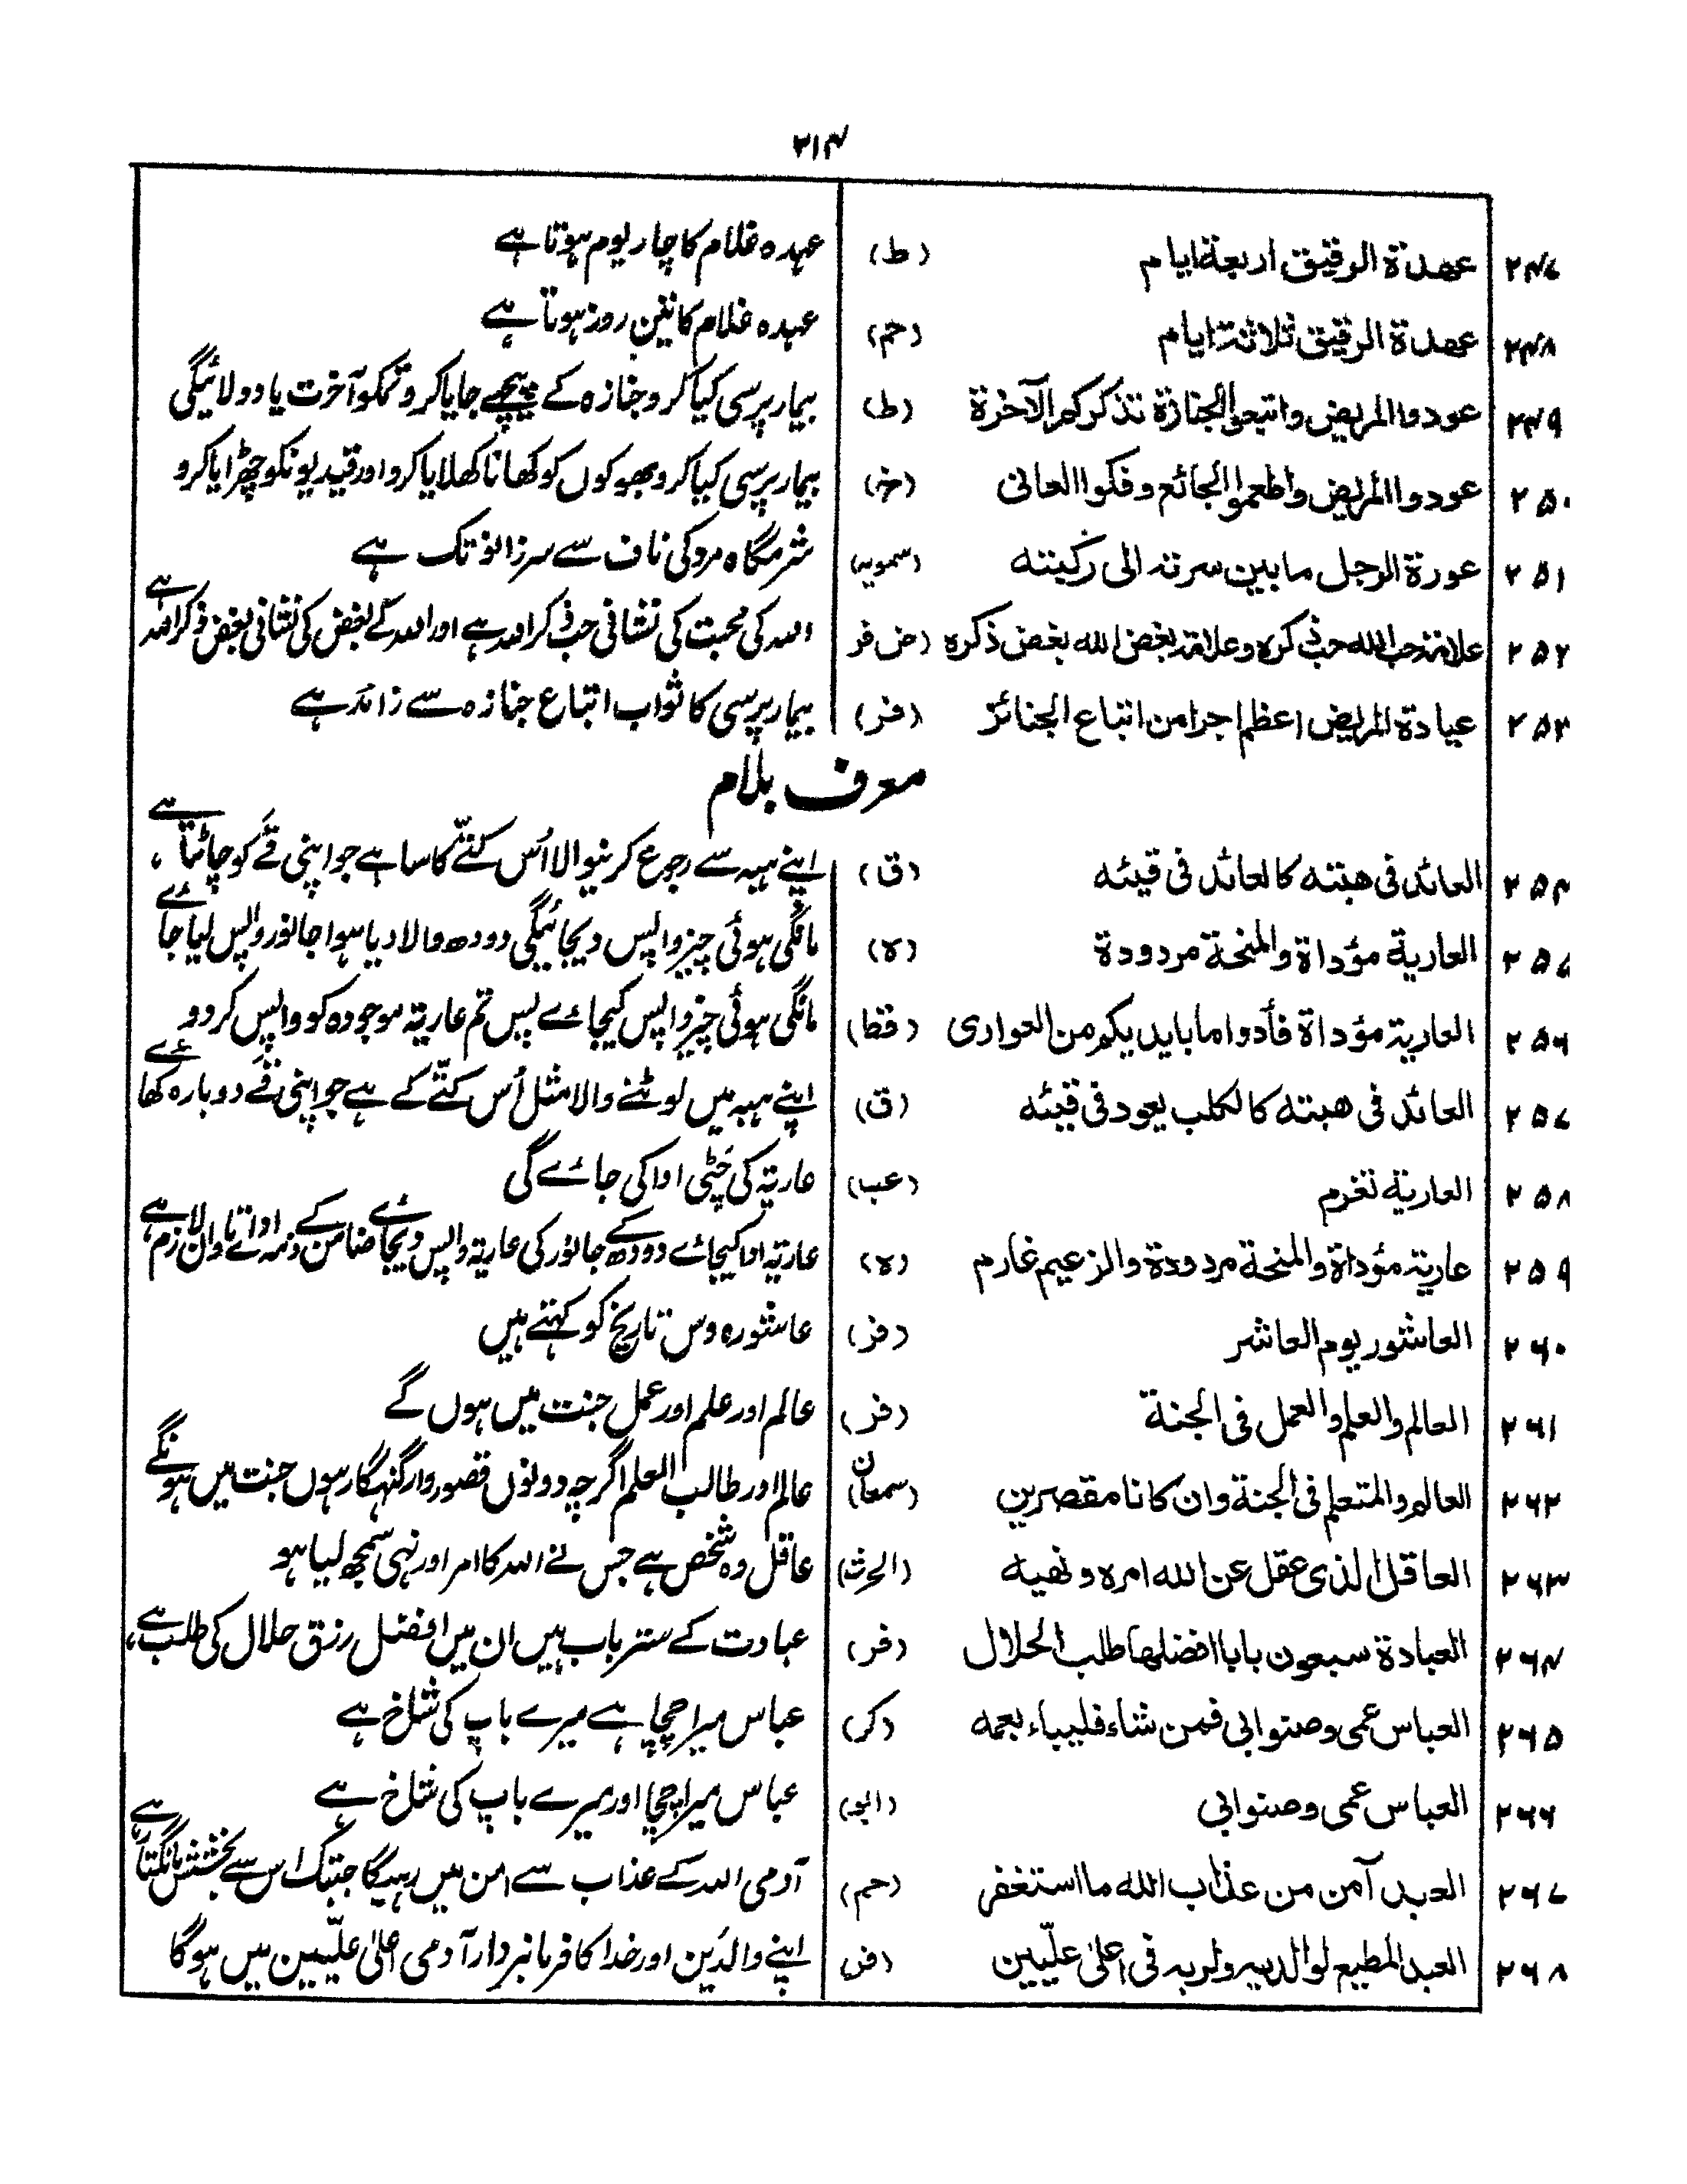 ۳۱۴
۲۴۷ عهدة الرقيق اربعة ايام (ط) عہدہ غلام کا چار یوم ہوتا ہے
۲۴۸ عهدة الرقيق ثلاثة ايام (حم) عہدہ غلام کا تین روز ہوتا ہے
۲۴۹ عودوا المريض واتبعوا الجنازة تذكركم الآخرة (ط) بیمار پرسی کیا کرو جنازہ کے پیچھے جایا کرو تمکو آخرت یاد دلائیگی
۲۵۰ عودوا المريض واطعموا الجائع وفكوا العانی (خ) بیمار پرسی کیا کرو بھوکوں کو کھانا کھلایا کرو اور قیدیونکو چھڑایا کرو
۲۵۱ عورة الرجل ما بين سرته الى ركبته (سمویہ) شرمگاہ مرد کی ناف سے سر زانو تک ہے
۲۵۲ علامة حب الله حب ذكره وعلامة بغض الله بغض ذكره (ض فر) اللہ کی محبت کی نشانی حب ذکر اللہ ہے اور اللہ کے بغض کی نشانی بغض ذکر اللہ ہے
۲۵۳ عيادة المريض اعظم اجرا من اتباع الجنائز (فر) بیمار پرسی کا ثواب اتباع جنازہ سے زائد ہے
معرف بلام
۲۵۴ العائد فی هبته كالعائد فی قيئه (ق) اپنے ہبہ سے رجوع کرنیوالا اُس کتّے کا سا ہے جو اپنی قے کو چاٹتا ہے،
۲۵۵ العارية مؤداة والمنحة مردودة (ہ) مانگی ہوئی چیز واپس دیجائیگی دودھ والا دیا ہوا جانور واپس لیا جائے
۲۵۶ العارية مؤداة فأدوا ما بايديكم من العواری (قظ) مانگی ہوئی چیز واپس کیجائے پس تم عاریۃ موجودہ کو واپس کر دو
۲۵۷ العائد فی هبته كالكلب يعود فی قيئه (ق) اپنے ہبہ میں لوٹنے والا مثل اُس کتّے کے ہے جو اپنی قے دوبارہ کھائے
۲۵۸ العارية تغرم (عب) عاریۃ کی چٹی ادا کی جائے گی
۲۵۹ عارية مؤداة والمنحة مردودة والزعيم غارم (ہ) عاریۃ ادا کیجائے دودھ کے جانور کی عاریۃ واپس دیجائے ضامن کے ذمہ ادائے تاوان لازم ہے
۲۶۰ العاشور يوم العاشر (فر) عاشورہ دس تاریخ کو کہتے ہیں
۲۶۱ العالم والعلم والعمل فی الجنة (فر) عالم اور علم اور عمل جنت میں ہوں گے
۲۶۲ العالم والمتعلم فی الجنة وان كانا مقصرين (سمعان) عالم اور طالب العلم اگرچہ دونوں قصور وار گنہگار ہوں جنت میں ہونگے
۲۶۳ العاقل الذی عقل عن الله امره ونهيه (الحرث) عاقل وہ شخص ہے جس نے اللہ کا امر اور نہی سمجھ لیا ہو
۲۶۴ العبادة سبعون بابا افضلها طلب الحلال (فر) عبادت کے ستر باب ہیں ان میں افضل رزق حلال کی طلب ہے،
۲۶۵ العباس عمی وصنو ابی فمن شاء فليباء بعمه (کر) عباس میرا چچا ہے میرے باپ کی شاخ ہے
۲۶۶ العباس عمی وصنو ابی (البحہ) عباس میرا چچا اور میرے باپ کی شاخ ہے
۲۶۷ العبد آمن من عذاب الله ما استغفر (حم) آدمی اللہ کے عذاب سے امن میں رہیگا جبتک اس سے بخشش مانگتا ہے
۲۶۸ العبد المطيع لوالديه ولربه فی اعلیٰ علّيين (فر) اپنے والدین اور خدا کا فرمانبردار آدمی اعلیٰ علّیین میں ہوگا